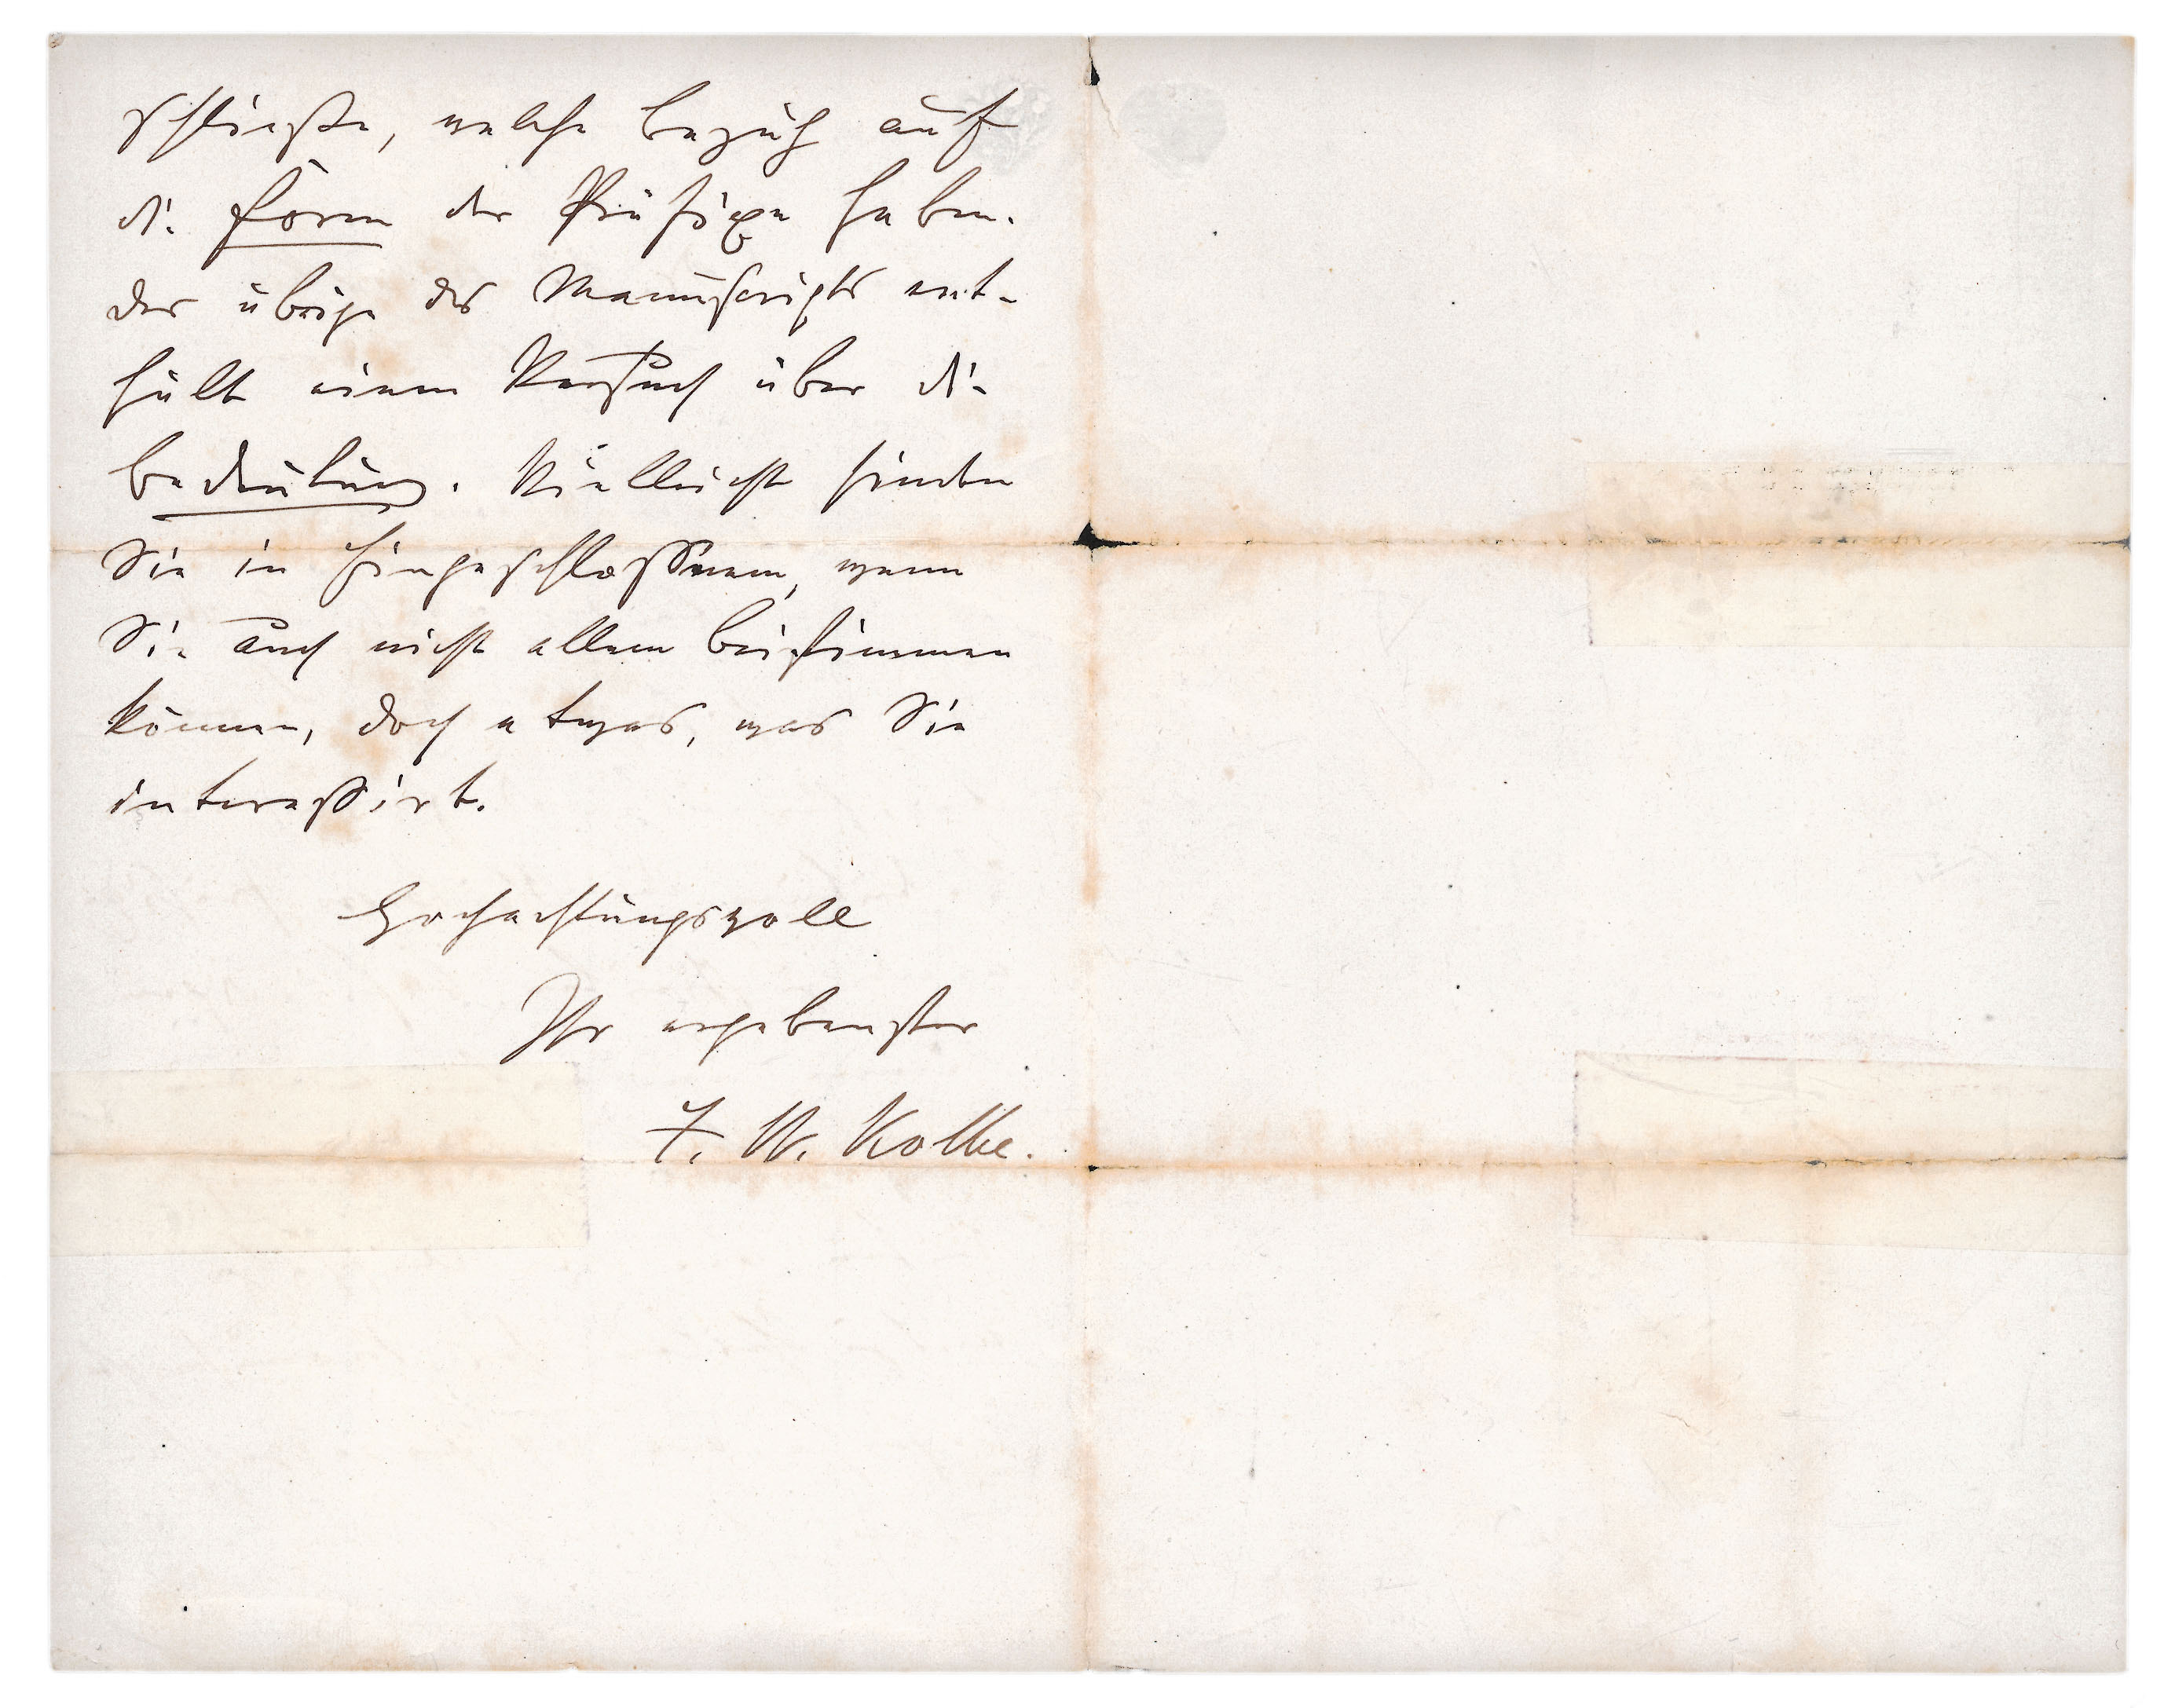 schließe, welche bezug auf
die Form der Präfixe haben.
Das übrige des Manuscripts ent-
hält einen Versuch über die
Bedeutung. Vielleicht finden
Sie in Eingeschlossenem, wenn
Sie auch nicht allem beistimmen
können, doch etwas, was Sie
interessirt.
Hochachtungsvoll
Ihr ergebenster
F. W. Kolbe.